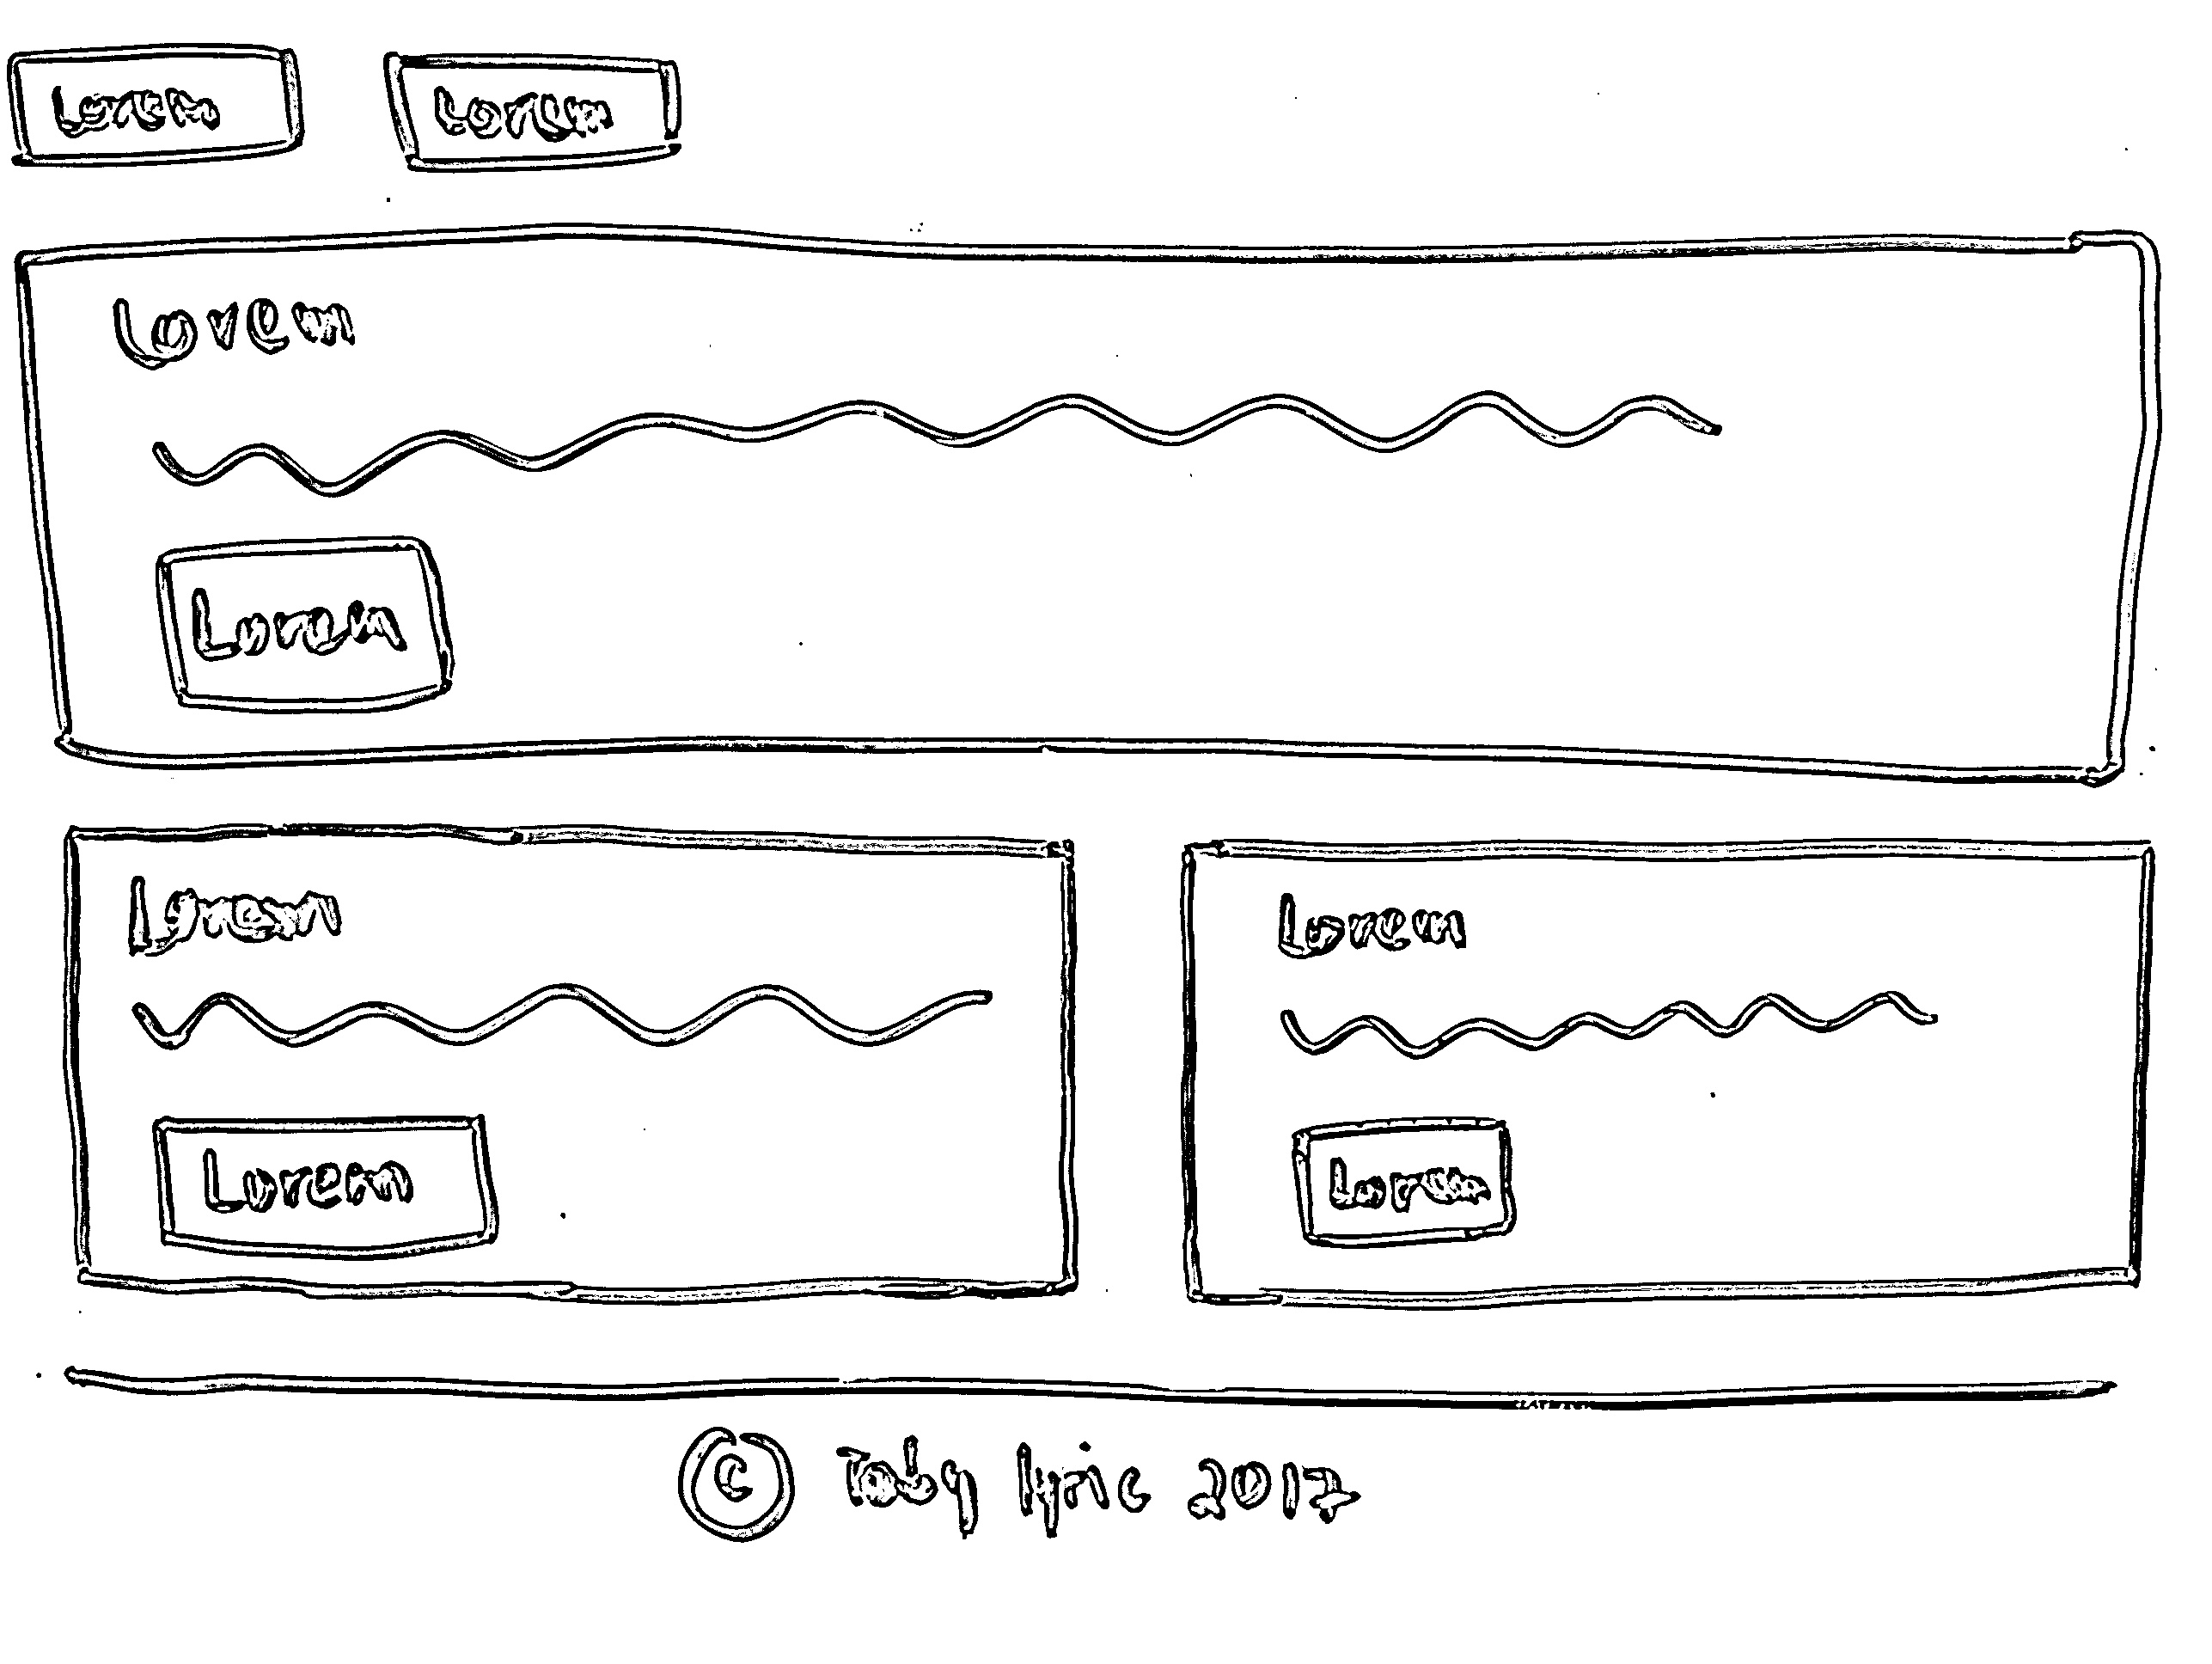 Lorem Lorem
Lorem
Lorem
Lorem Lorem
Lorem Lorem
© Toby lyric 2017